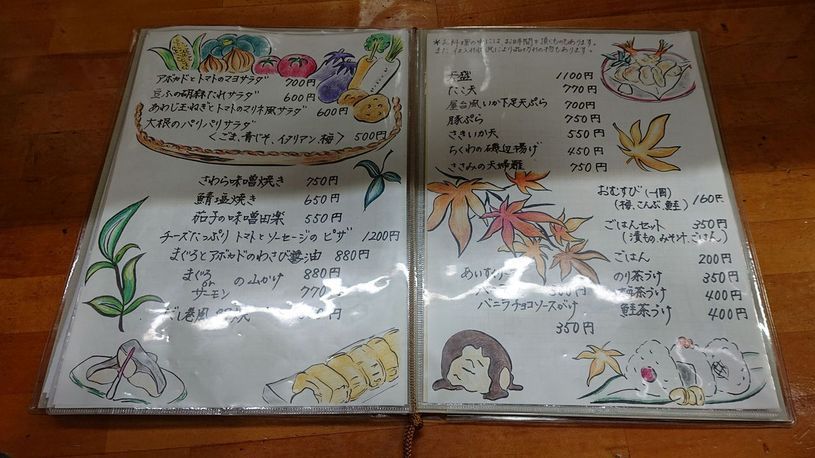 アボカドとトマトのマヨサラダ 700円
豆ふの胡麻だれサラダ 600円
あわじ玉ねぎとトマトのマリネ風サラダ 600円
大根のパリパリサラダ
<ごま、青じそ、イタリアン、梅> 500円
さわら味噌焼き 750円
鯖塩焼き 650円
茄子の味噌田楽 550円
チーズたっぷり トマトとソーセージのピザ 1200円
まぐろとアボカドのわさび醤油 880円
まぐろ 880円
or の山かけ
サーモン 770
だし巻風
*お料理の中には、お時間を頂くものもあります。
また、仕入れ状況により品切れの物もあります。
天盛 1100円
たこ天 770
屋台風いか下足天ぷら 700円
豚ぷら 750円
さきいか天 550円
ちくわの磯辺揚げ 450円
ささみの天婦羅 750円
おむすび(一個)
(梅、こんぶ、鮭) 160円
ごはんセット 350円
(漬もの、みそ汁、ごはん)
ごはん 200円
のり茶づけ 350円
梅茶づけ 400円
鮭茶づけ 400円
あいすくりーむ
バニラ 300円
バニラチョコソースがけ
350円